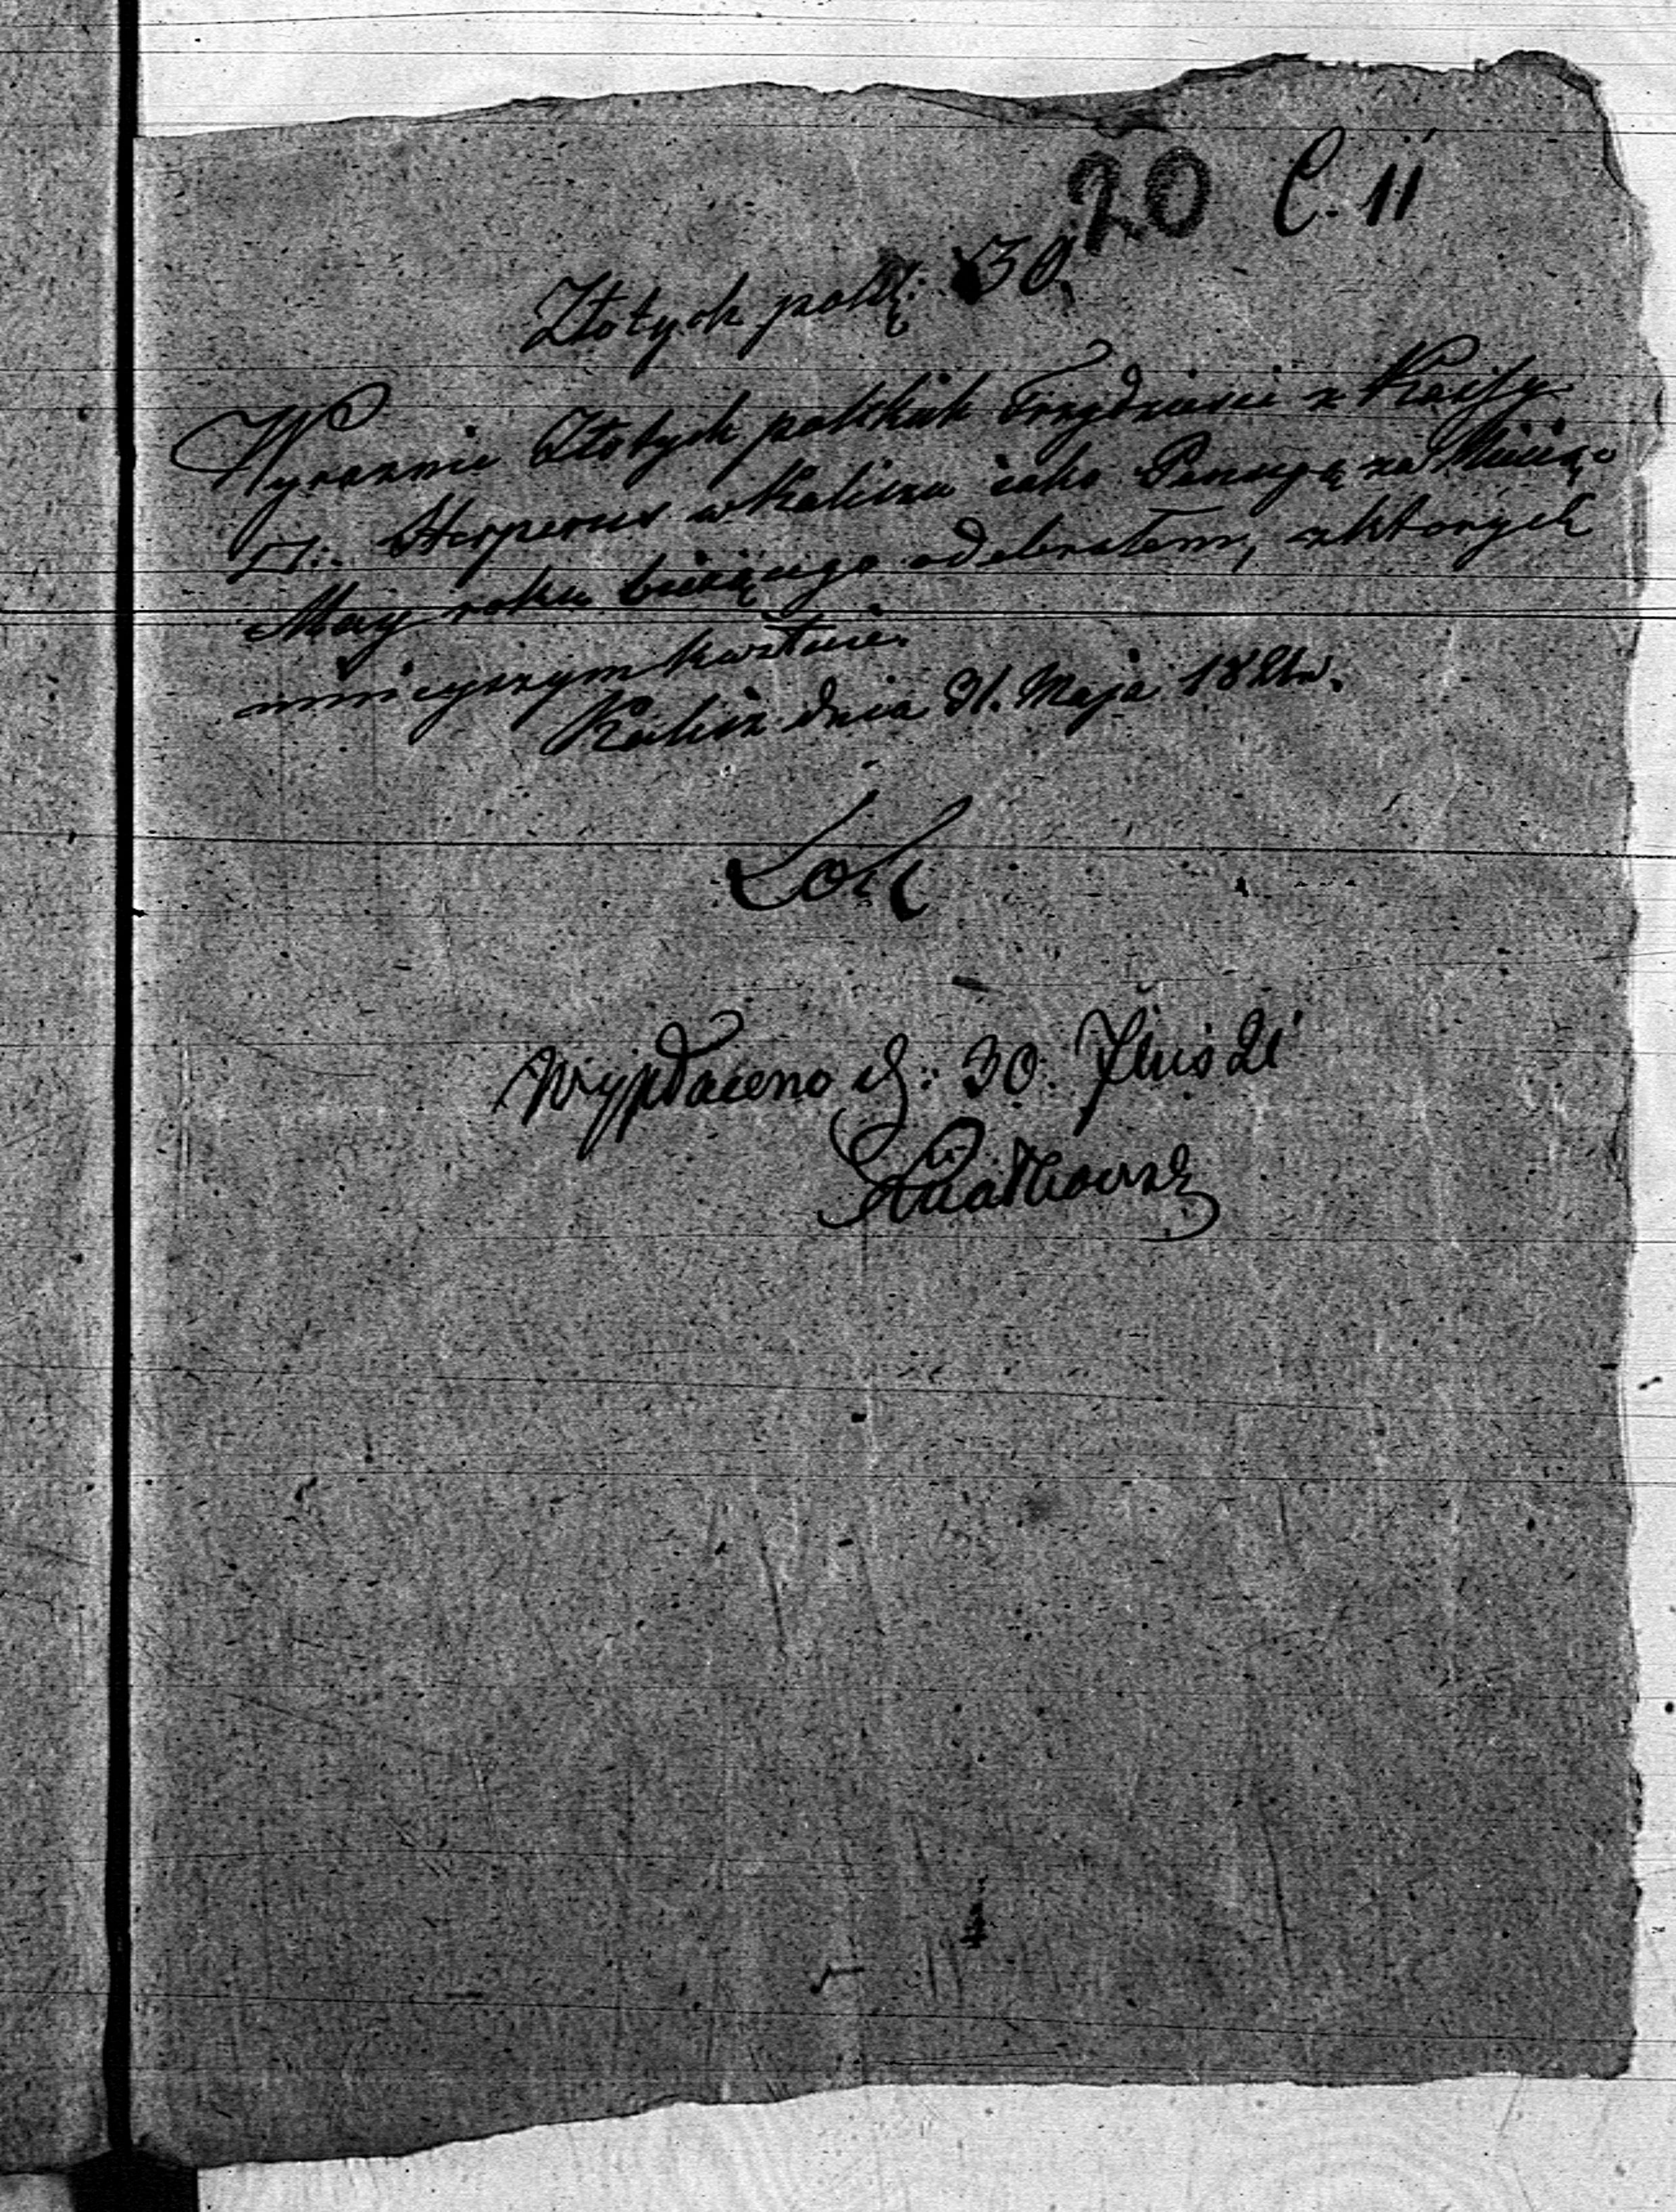 20 C. 11
Złotych polś: 30.
Wyraznie Złotych polskich Trzydzieści z Kassy
Hesperus w Kaliszu iako Pensyą za Miesiąc
May roku bieżącego odebrałem, z których
ninieyszym kwituię.
Kalisz dnia 31. Maja 1821r.
Wypłaceno d: 30. 21
Kwiatkowski